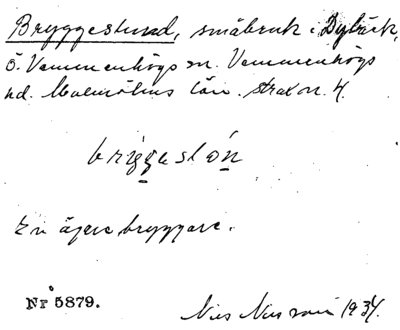 Bryggeslund, småbruk i Dybäck,
Ö. Vemmenhögs sn. Vemmenhögs
hd. Malmöhus län. strax n. 4.
briggeslón
En ägare bryggare.
Nr 5879.
Nils Nilsson 1934.